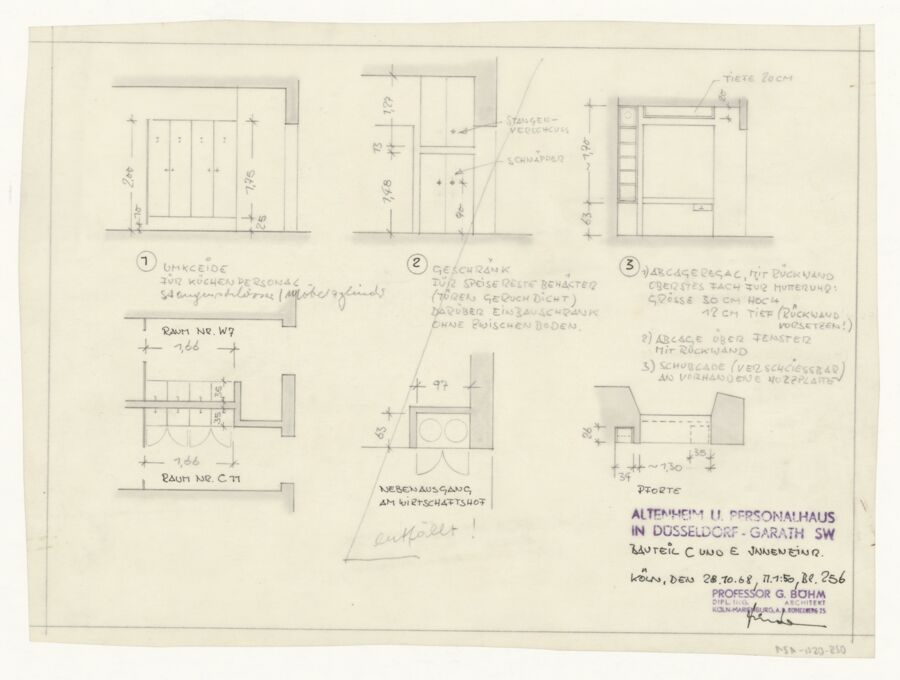 TIEFE 20CM
20
1,27
STANGEN-
VERSCHLUSS
13
SCHNÄPPER
2,00
1,75
1,48
90
~1,70
63
10
25
1
UMKLEIDE
FÜR KÜCHENPERSONAL
Stangenschlösser/Möbelzylinder
2
GESCHRÄNK
FÜR SPEISERESTEBEHÄLTER
(TÜREN GERUCHDICHT)
DARÜBER EINBAUSCHRANK
OHNE ZWISCHENBODEN.
3
1) ABLAGEREGAL, MIT RÜCKWAND
OBERSTES FACH FÜR MUTTERUHR:
GRÖSSE 30 CM HOCH
12 CM TIEF (RÜCKWAND
VORSETZEN!)
2) ABLAGE ÜBER FENSTER
MIT RÜCKWAND
3) SCHUBLADE (VERSCHLIESSBAR)
AN VORHANDENE HOLZPLATTE
RAUM NR. W7
1,66
35
35
1,66
RAUM NR. C11
97
63
NEBENAUSGANG
AM WIRTSCHAFTSHOF
entfällt!
26
35
34
~1,30
PFORTE
ALTENHEIM U. PERSONALHAUS
IN DÜSSELDORF-GARATH SW
BAUTEIL C UND E INNENEINR.
KÖLN, DEN 28.10.68, M.1:50, BL. 256
PROFESSOR G. BÖHM
DIPL. ING. ARCHITEKT
KÖLN-MARIENBURG, A. D.